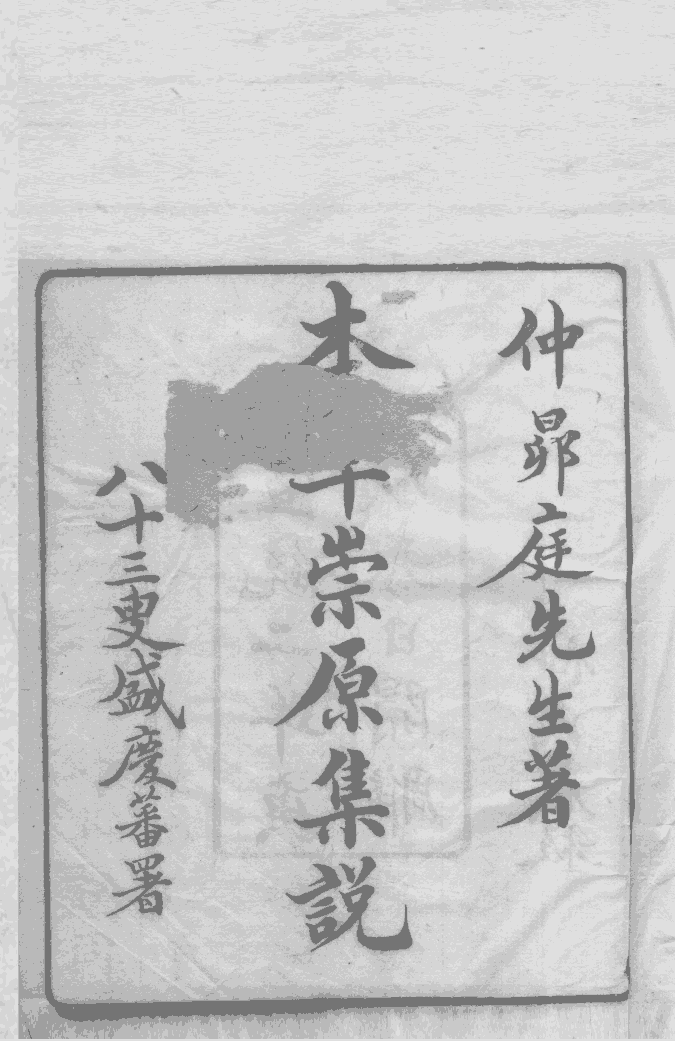 仲昴庭先生著
本 崇原集説
八十三叟盛慶蕃署